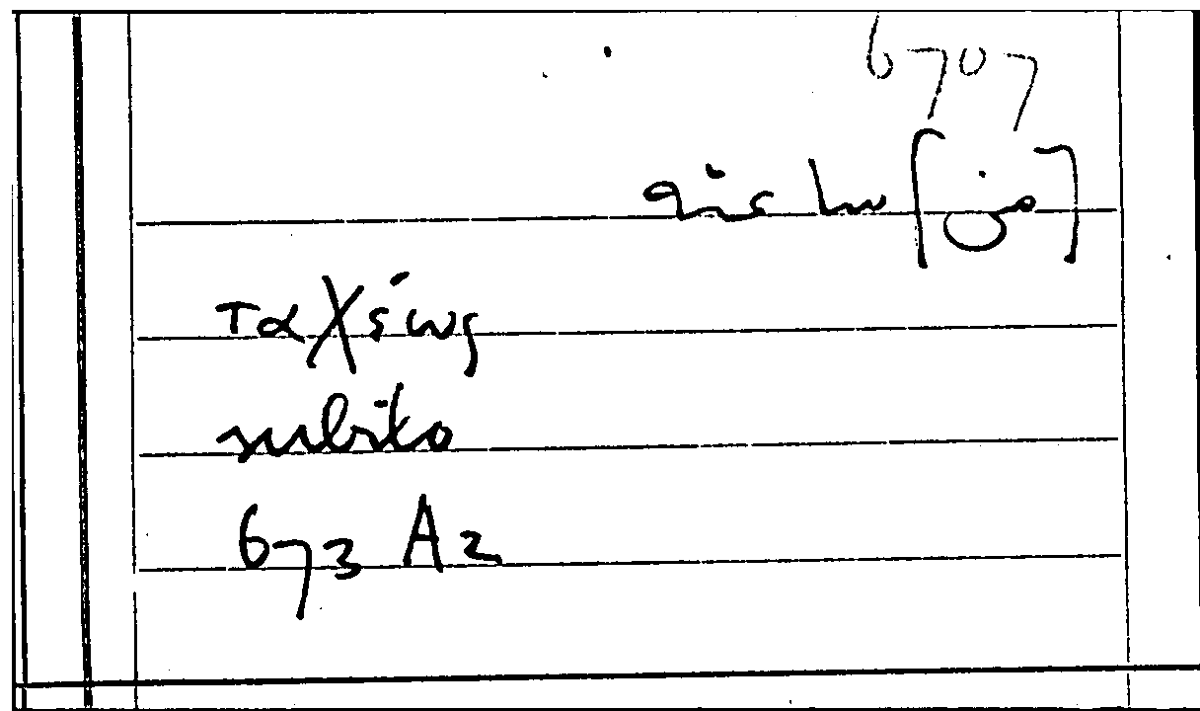 6707
[من] ساعته
ταχέως
subito
673 A2